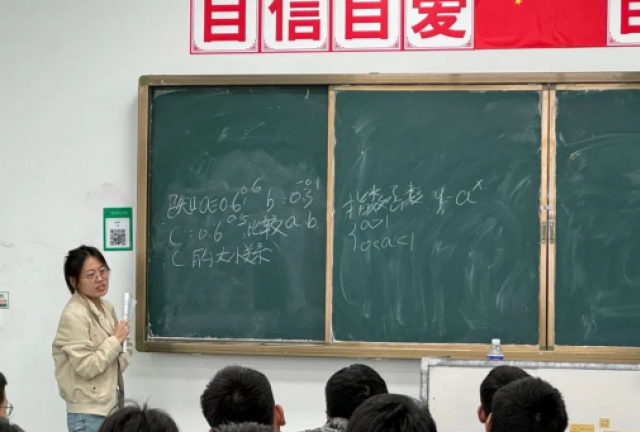 自信自爱 自
已知a=0.6^0.6 b=0.5^-0.1
c=0.6^0.5 比较a b
c的大小关系
指数函数 y=a^x
a>1
0<a<1